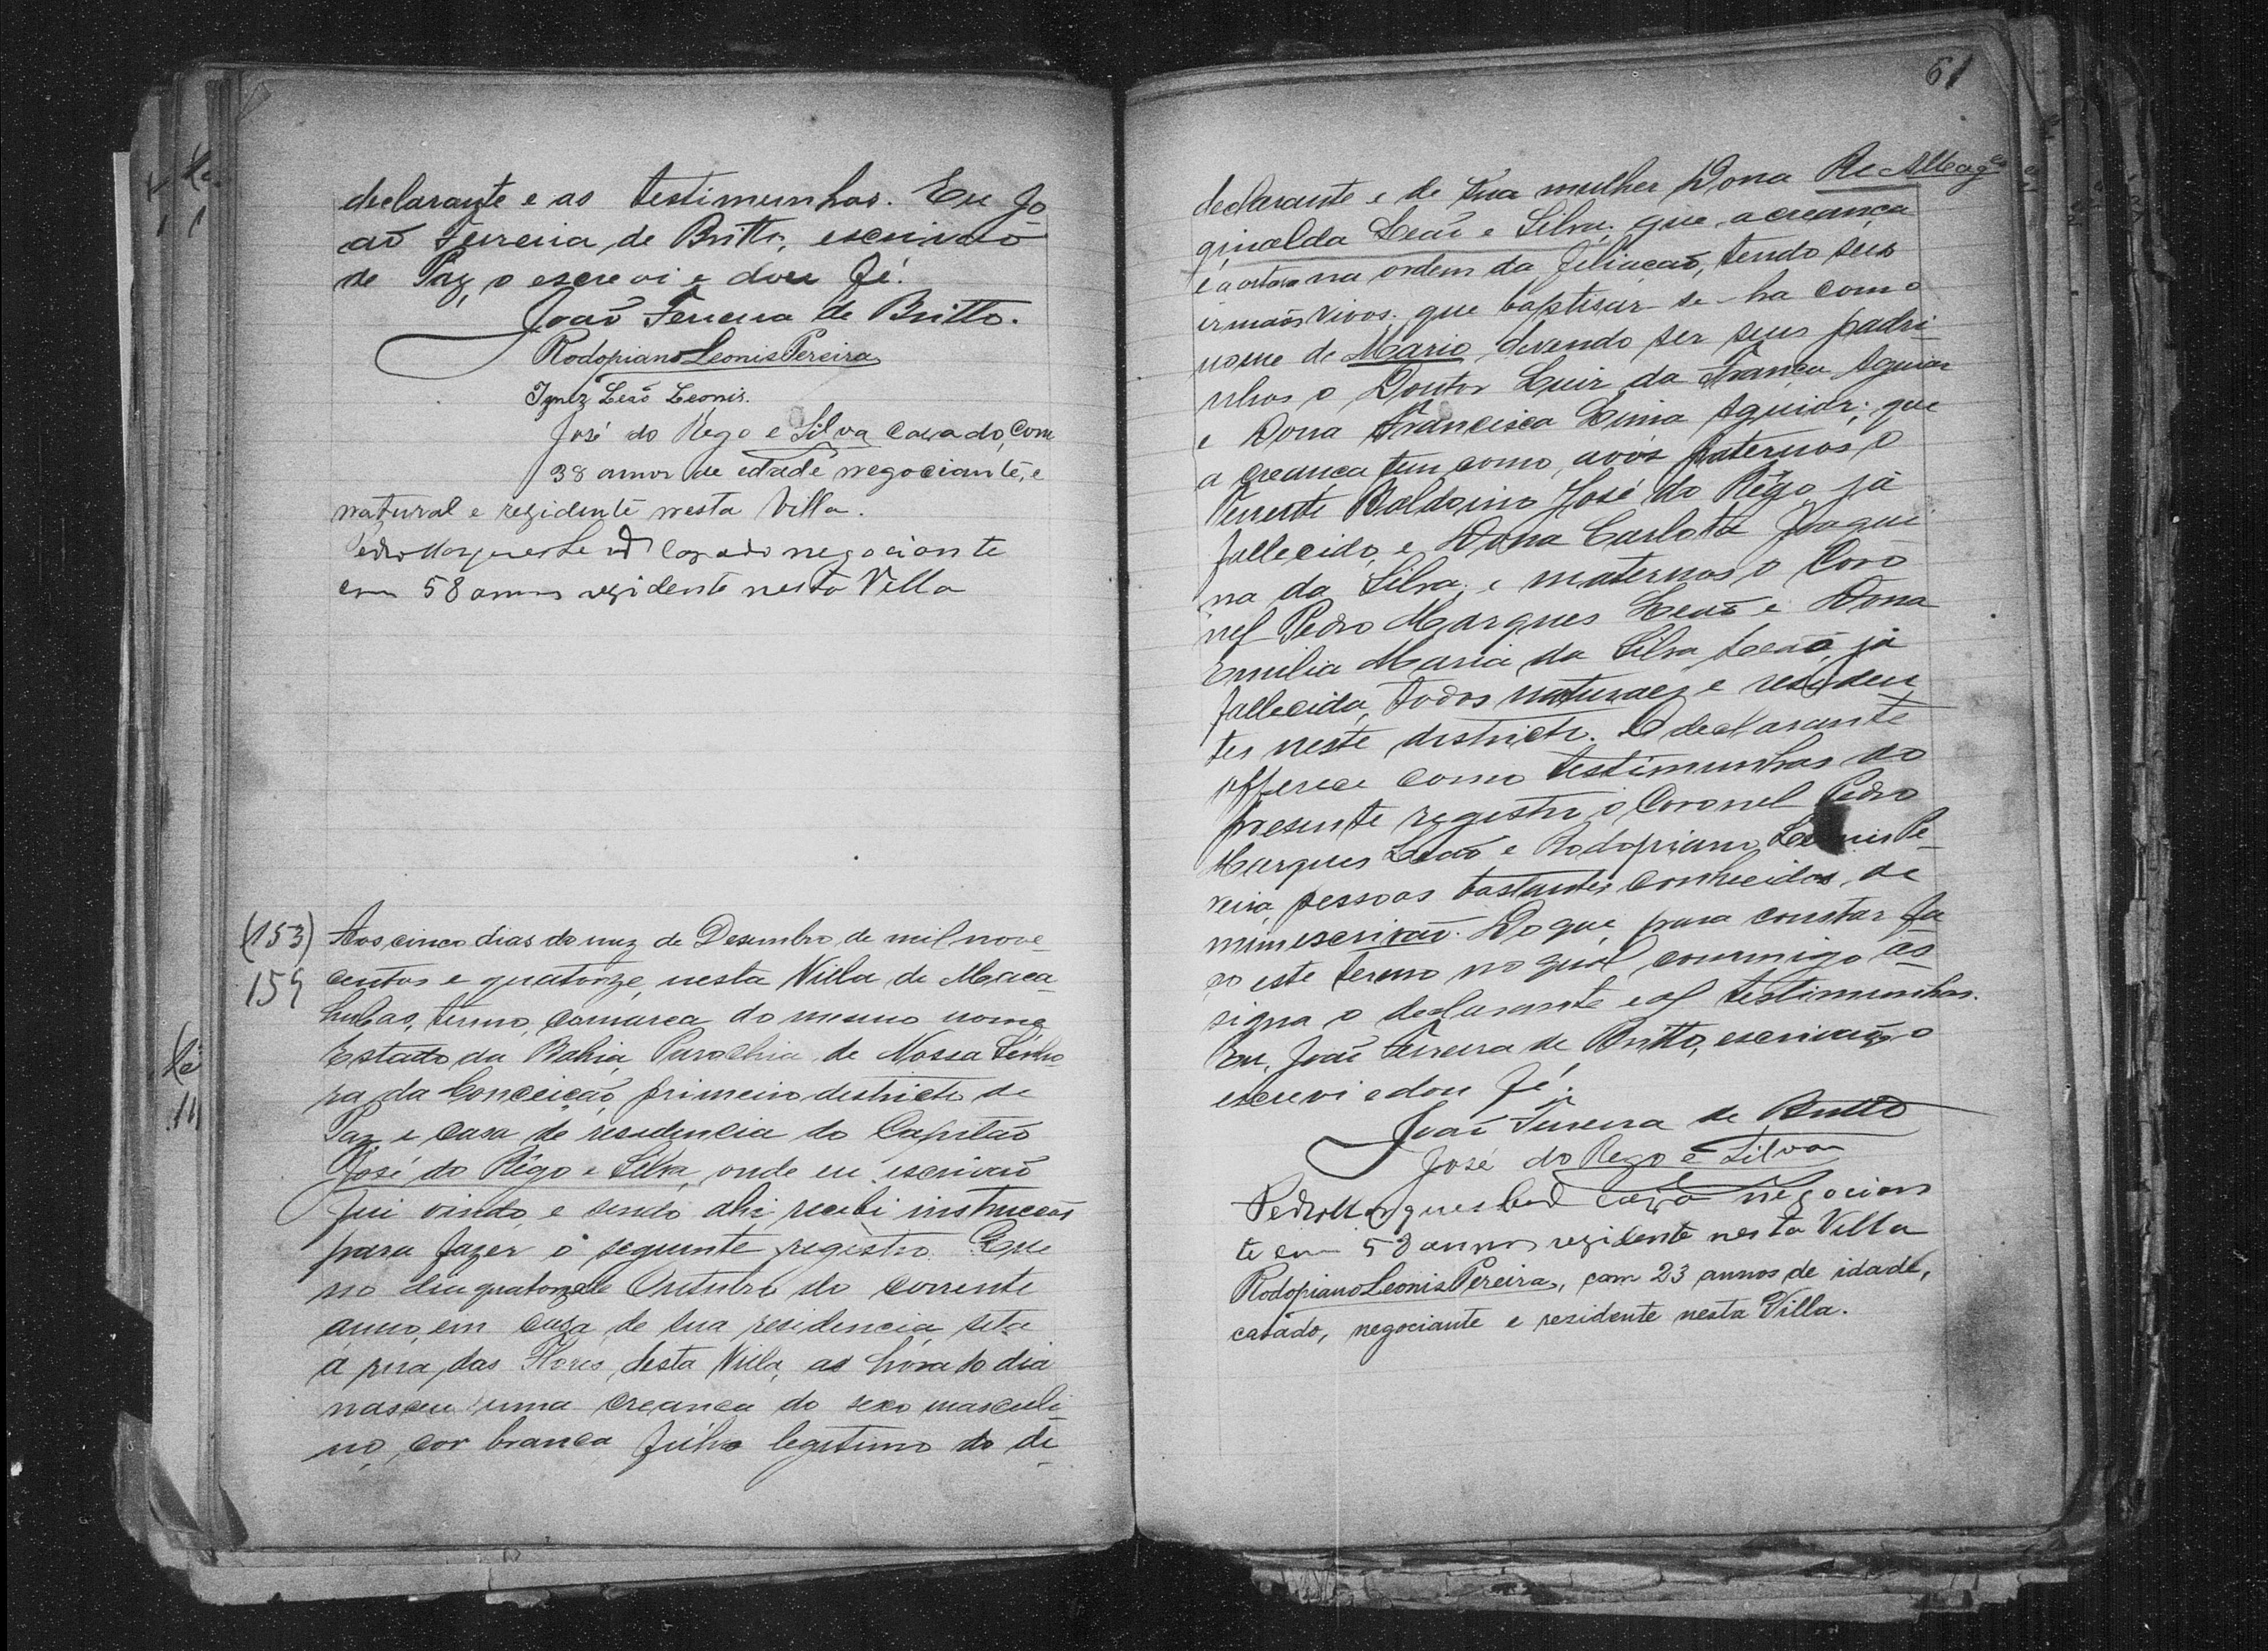 declarante e as testimunhas. Eu Jo
aõ Ferreira de Britto, escrivaõ
de Paz, o escrevi e dou fé.
Joaõ Ferreira de Britto.
Rodopiano Leonis Pereira
Ignez Leaõ Leonis.
José do Rego e Silva Casado, com
38 annos de edade negociante, e
natural e rezidente nesta Villa.
Pedro Marques Casado negociante
com 58 annos rezidente nesta Villa
(153)
159
Aos cinco dias do mez de Desembro de mil nove-
centos e quatorze, nesta Villa de Maca-
hubas, termo, comarca do mesmo nome
Estado da Bahia, Parochia de Nossa Senho-
ra da Conceiçaõ, primeiro districto de
Paz e casa de residencia do Capitaõ
José do Rêgo e Silva, onde eu escrivaõ
fui vindo, e sendo ahi recebi instrucçaõ
para fazer o seguinte registro. Que
no dia quatorze de Outubro do corrente
anno, em caza de sua residencia, sita
á rua das Flores, desta Villa, as do dia
nasceu uma creança do sexo masculi
no, cor branca, filho legitimo do de-
61
declarante e de sua mulher Dona
Leaõ e Silva; que a creança
é a na ordem da filiacaõ, tendo seis
irmaõs vivos. que baptisar-se-ha com o
nome de Mario, devendo ser seus padri-
nhos o Doutor Luiz da França Aguiar
e Dona Francisca Lima Aguiar; que
a creança tem como avós paternos o
Tenente José do Rêgo, já
fallecido, e Dona Carlota Joaqui
na da Silva, e maternos o Coro
nel Pedro Marques Leaõ e Dona
Emilia Maria da Silva Leaõ, já
fallecida, todos naturaes e residen
tes neste districto. O declarante
offerece como testimunhas do
presente registro o Coronel Pedro
Marques Leaõ e Rodopiano Leonis Pe-
reira, pessoas bastantes conhecidas de
mim escrivaõ. Do que para constar fa
ço este termo no qual commigo as-
signa o declarante e as testimunhas.
Eu, Joaõ Ferreira de Britto, escrivaõ o
escrevi e dou fé.
Joaõ Ferreira de Britto
José do Rego e Silva
Pedro Marques negocian
te com 58 annos rezidente nesta Villa
Rodopiano Leonis Pereira, com 23 annos de idade,
casado, negociante e residente nesta Villa.